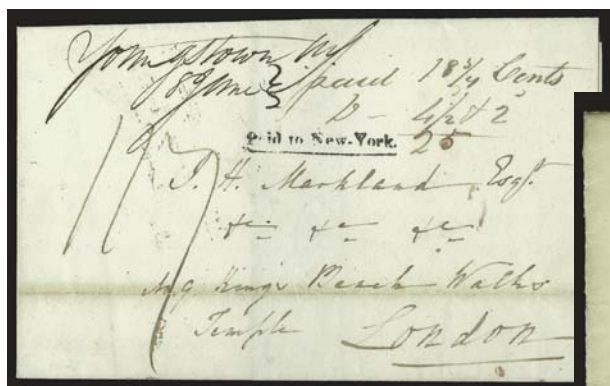 Youngstown NY
18 June } paid 18 3/4 Cents
D – 4 1/2 & 2
Paid to New-York.
25
J. H. Markland Esqr.
&c &c &c
No 9 King's Bench Walks
Temple
London